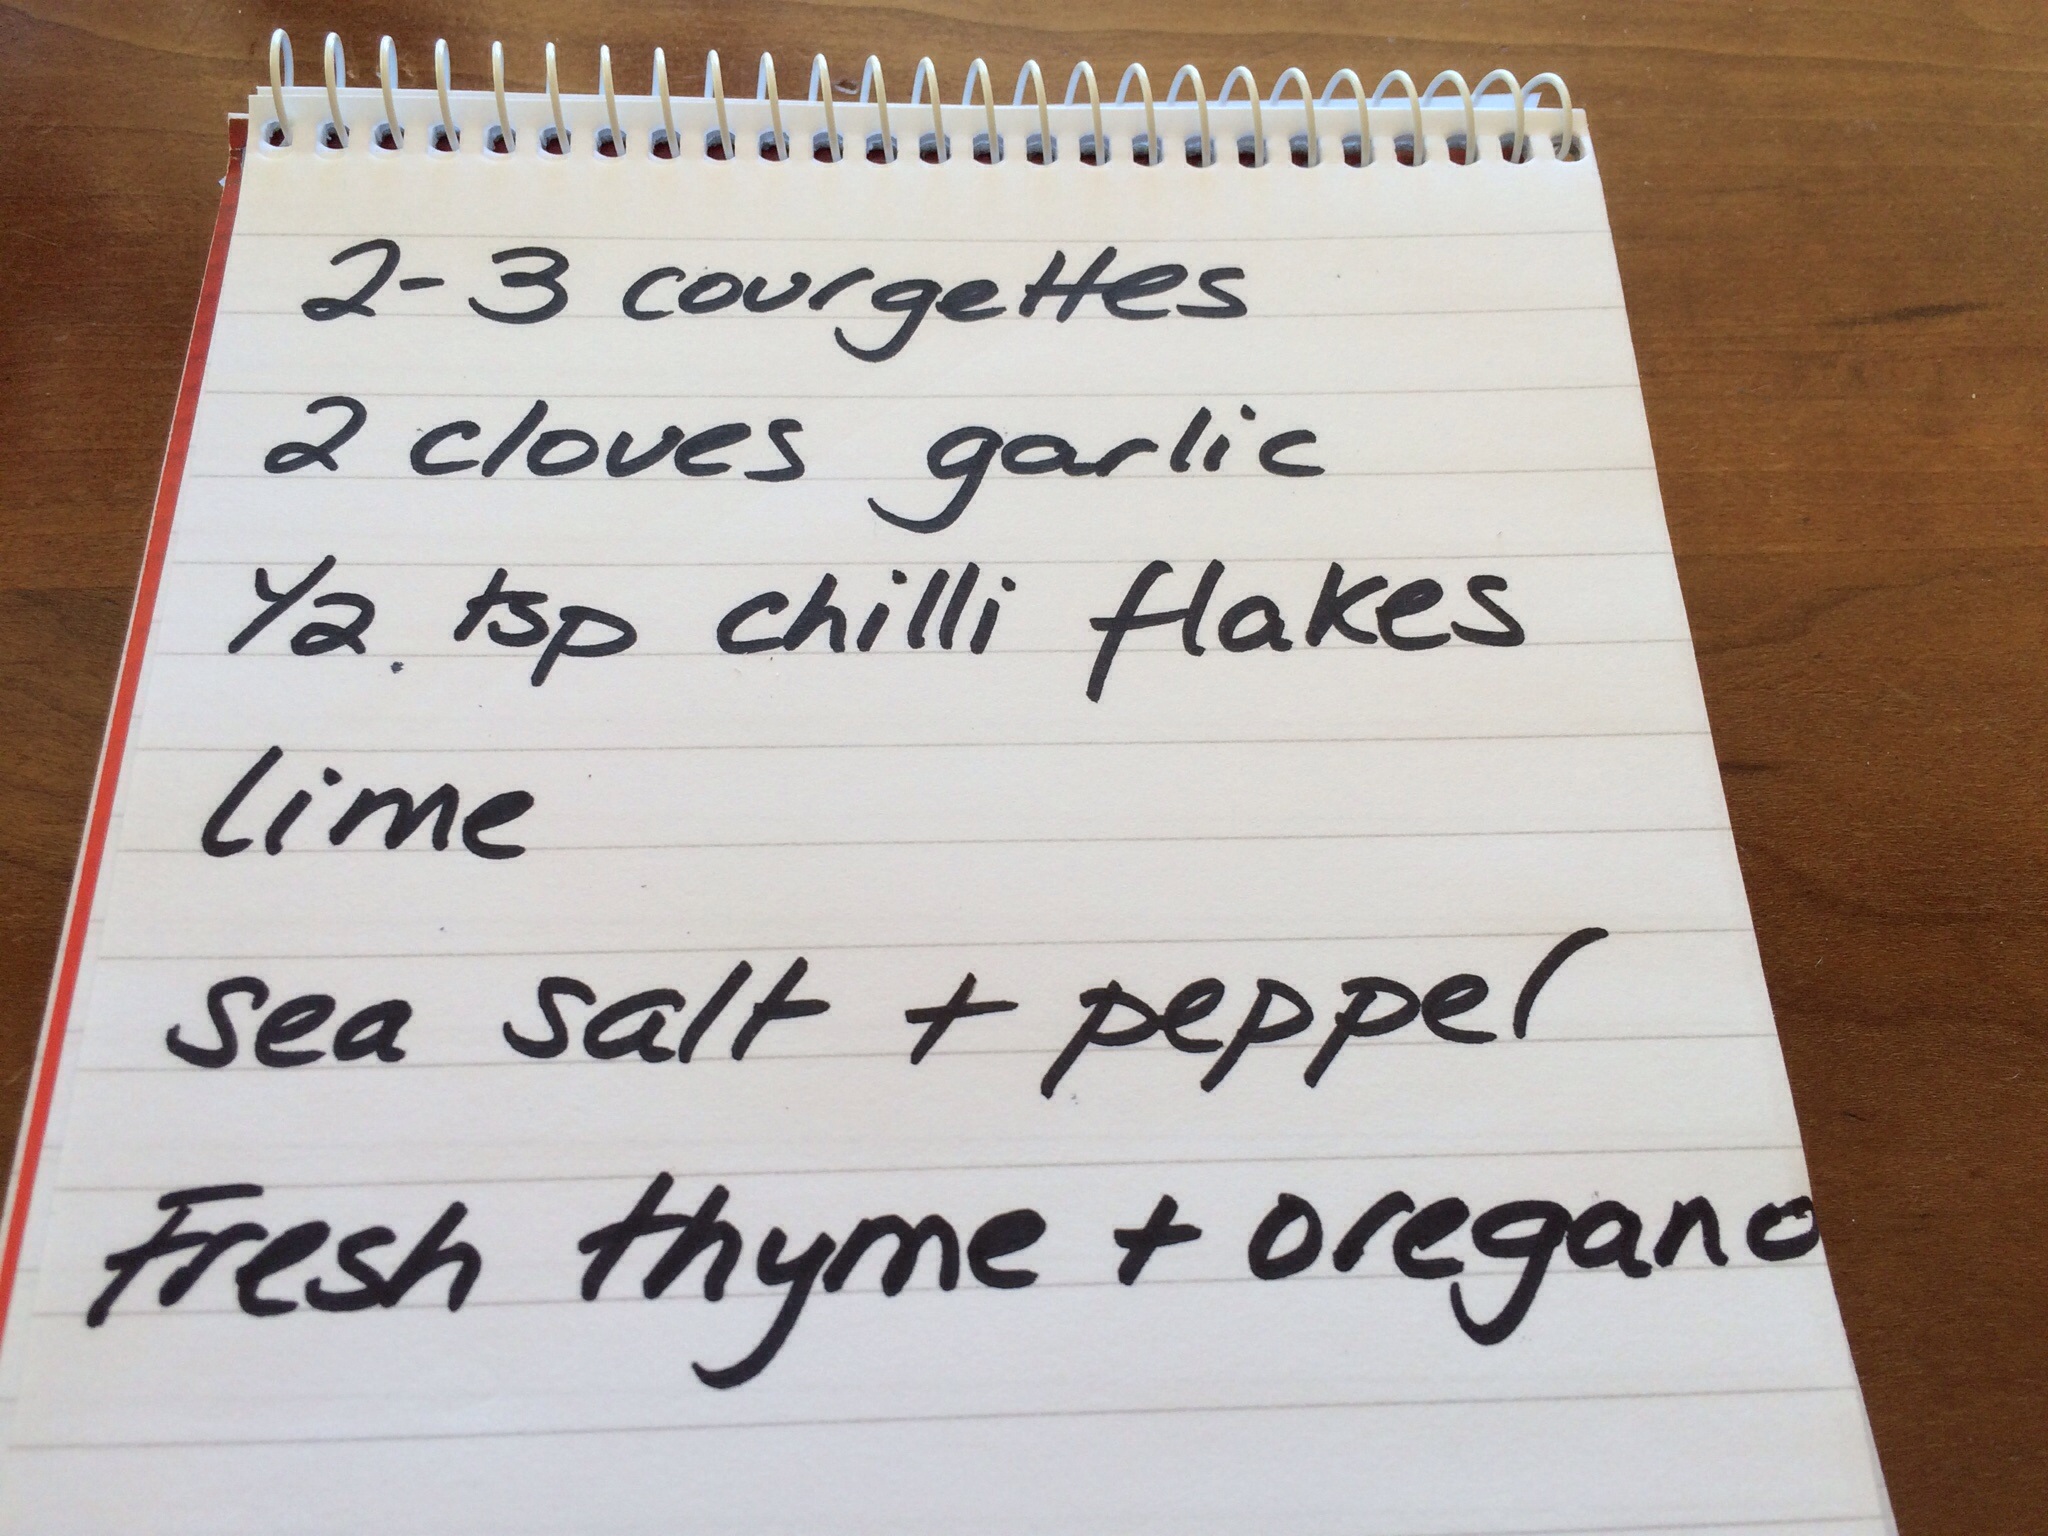 2-3 courgettes
2 cloves garlic
1/2. tsp chilli flakes
lime
sea salt + pepper
Fresh thyme + oregano